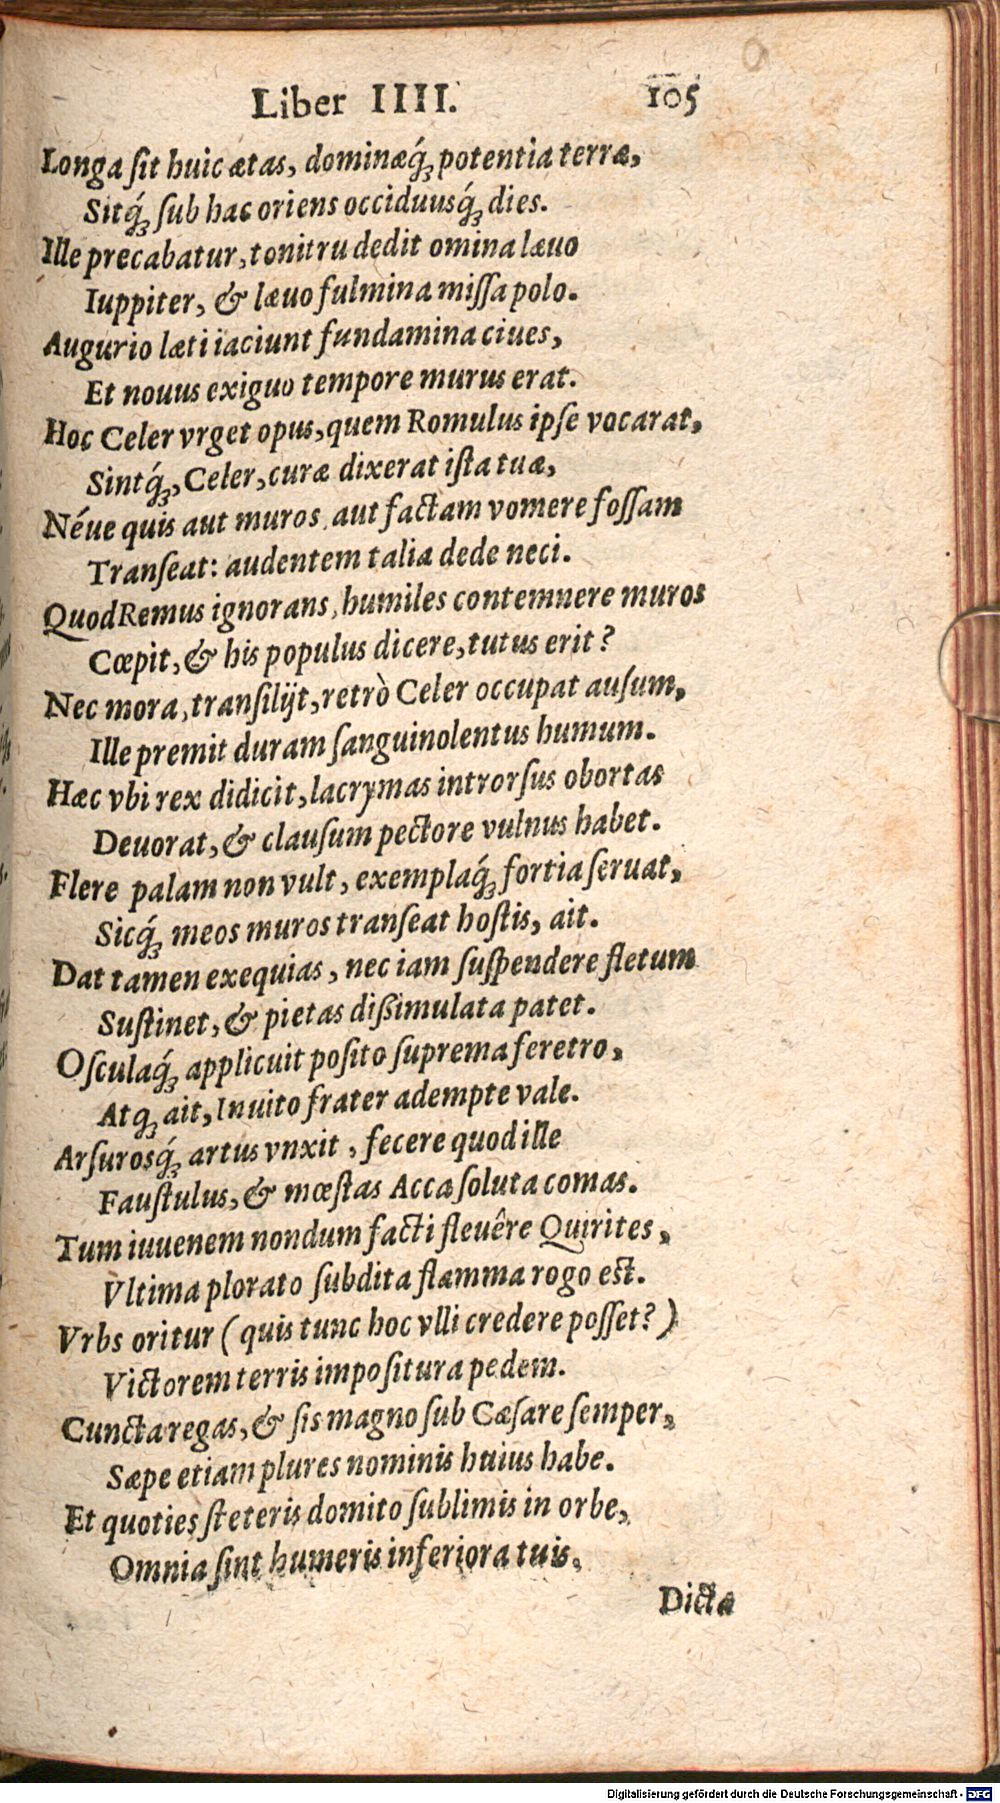 Liber IIII. 105
Longa ſit huic ætas, dominæq́; potentia terræ,
Sitq́; ſub hac oriens occiduusq́; dies.
Ille precabatur, tonitru dedit omina læuo
Iuppiter, & læuo fulmina miſſa polo.
Augurio læti iaciunt fundamina ciues,
Et nouus exiguo tempore murus erat.
Hoc Celer vrget opus, quem Romulus ipſe vocarat,
Sintq́;, Celer, curæ dixerat iſta tuæ,
Néue quis aut muros, aut factam vomere foſſam
Tranſeat: audentem talia dede neci.
Quod Remus ignorans, humiles contemnere muros
Cœpit, & his populus dicere, tutus erit?
Nec mora, tranſilijt, retrò Celer occupat auſum,
Ille premit duram ſanguinolentus humum.
Hæc vbi rex didicit, lacrymas introrſus obortas
Deuorat, & clauſum pectore vulnus habet.
Flere palam non vult, exemplaq́; fortia ſeruat,
Sicq́; meos muros tranſeat hoſtis, ait.
Dat tamen exequias, nec iam ſuſpendere fletum
Suſtinet, & pietas diſsimulata patet.
Oſculaq́; applicuit poſito ſuprema feretro,
Atq; ait, Inuito frater adempte vale.
Arſurosq́; artus vnxit, fecere quod ille
Fauſtulus, & mœſtas Acca ſoluta comas.
Tum iuuenem nondum facti fleuêre Quirites,
Vltima plorato ſubdita flamma rogo eſt.
Vrbs oritur (quis tunc hoc vlli credere poſſet?)
Victorem terris impoſitura pedem.
Cuncta regas, & ſis magno ſub Cæſare ſemper,
Sæpe etiam plures nominis huius habe.
Et quoties ſteteris domito ſublimis in orbe,
Omnia ſint humeris inferiora tuis.
Dicta
Digitalisierung gefördert durch die Deutsche Forschungsgemeinschaft - DFG